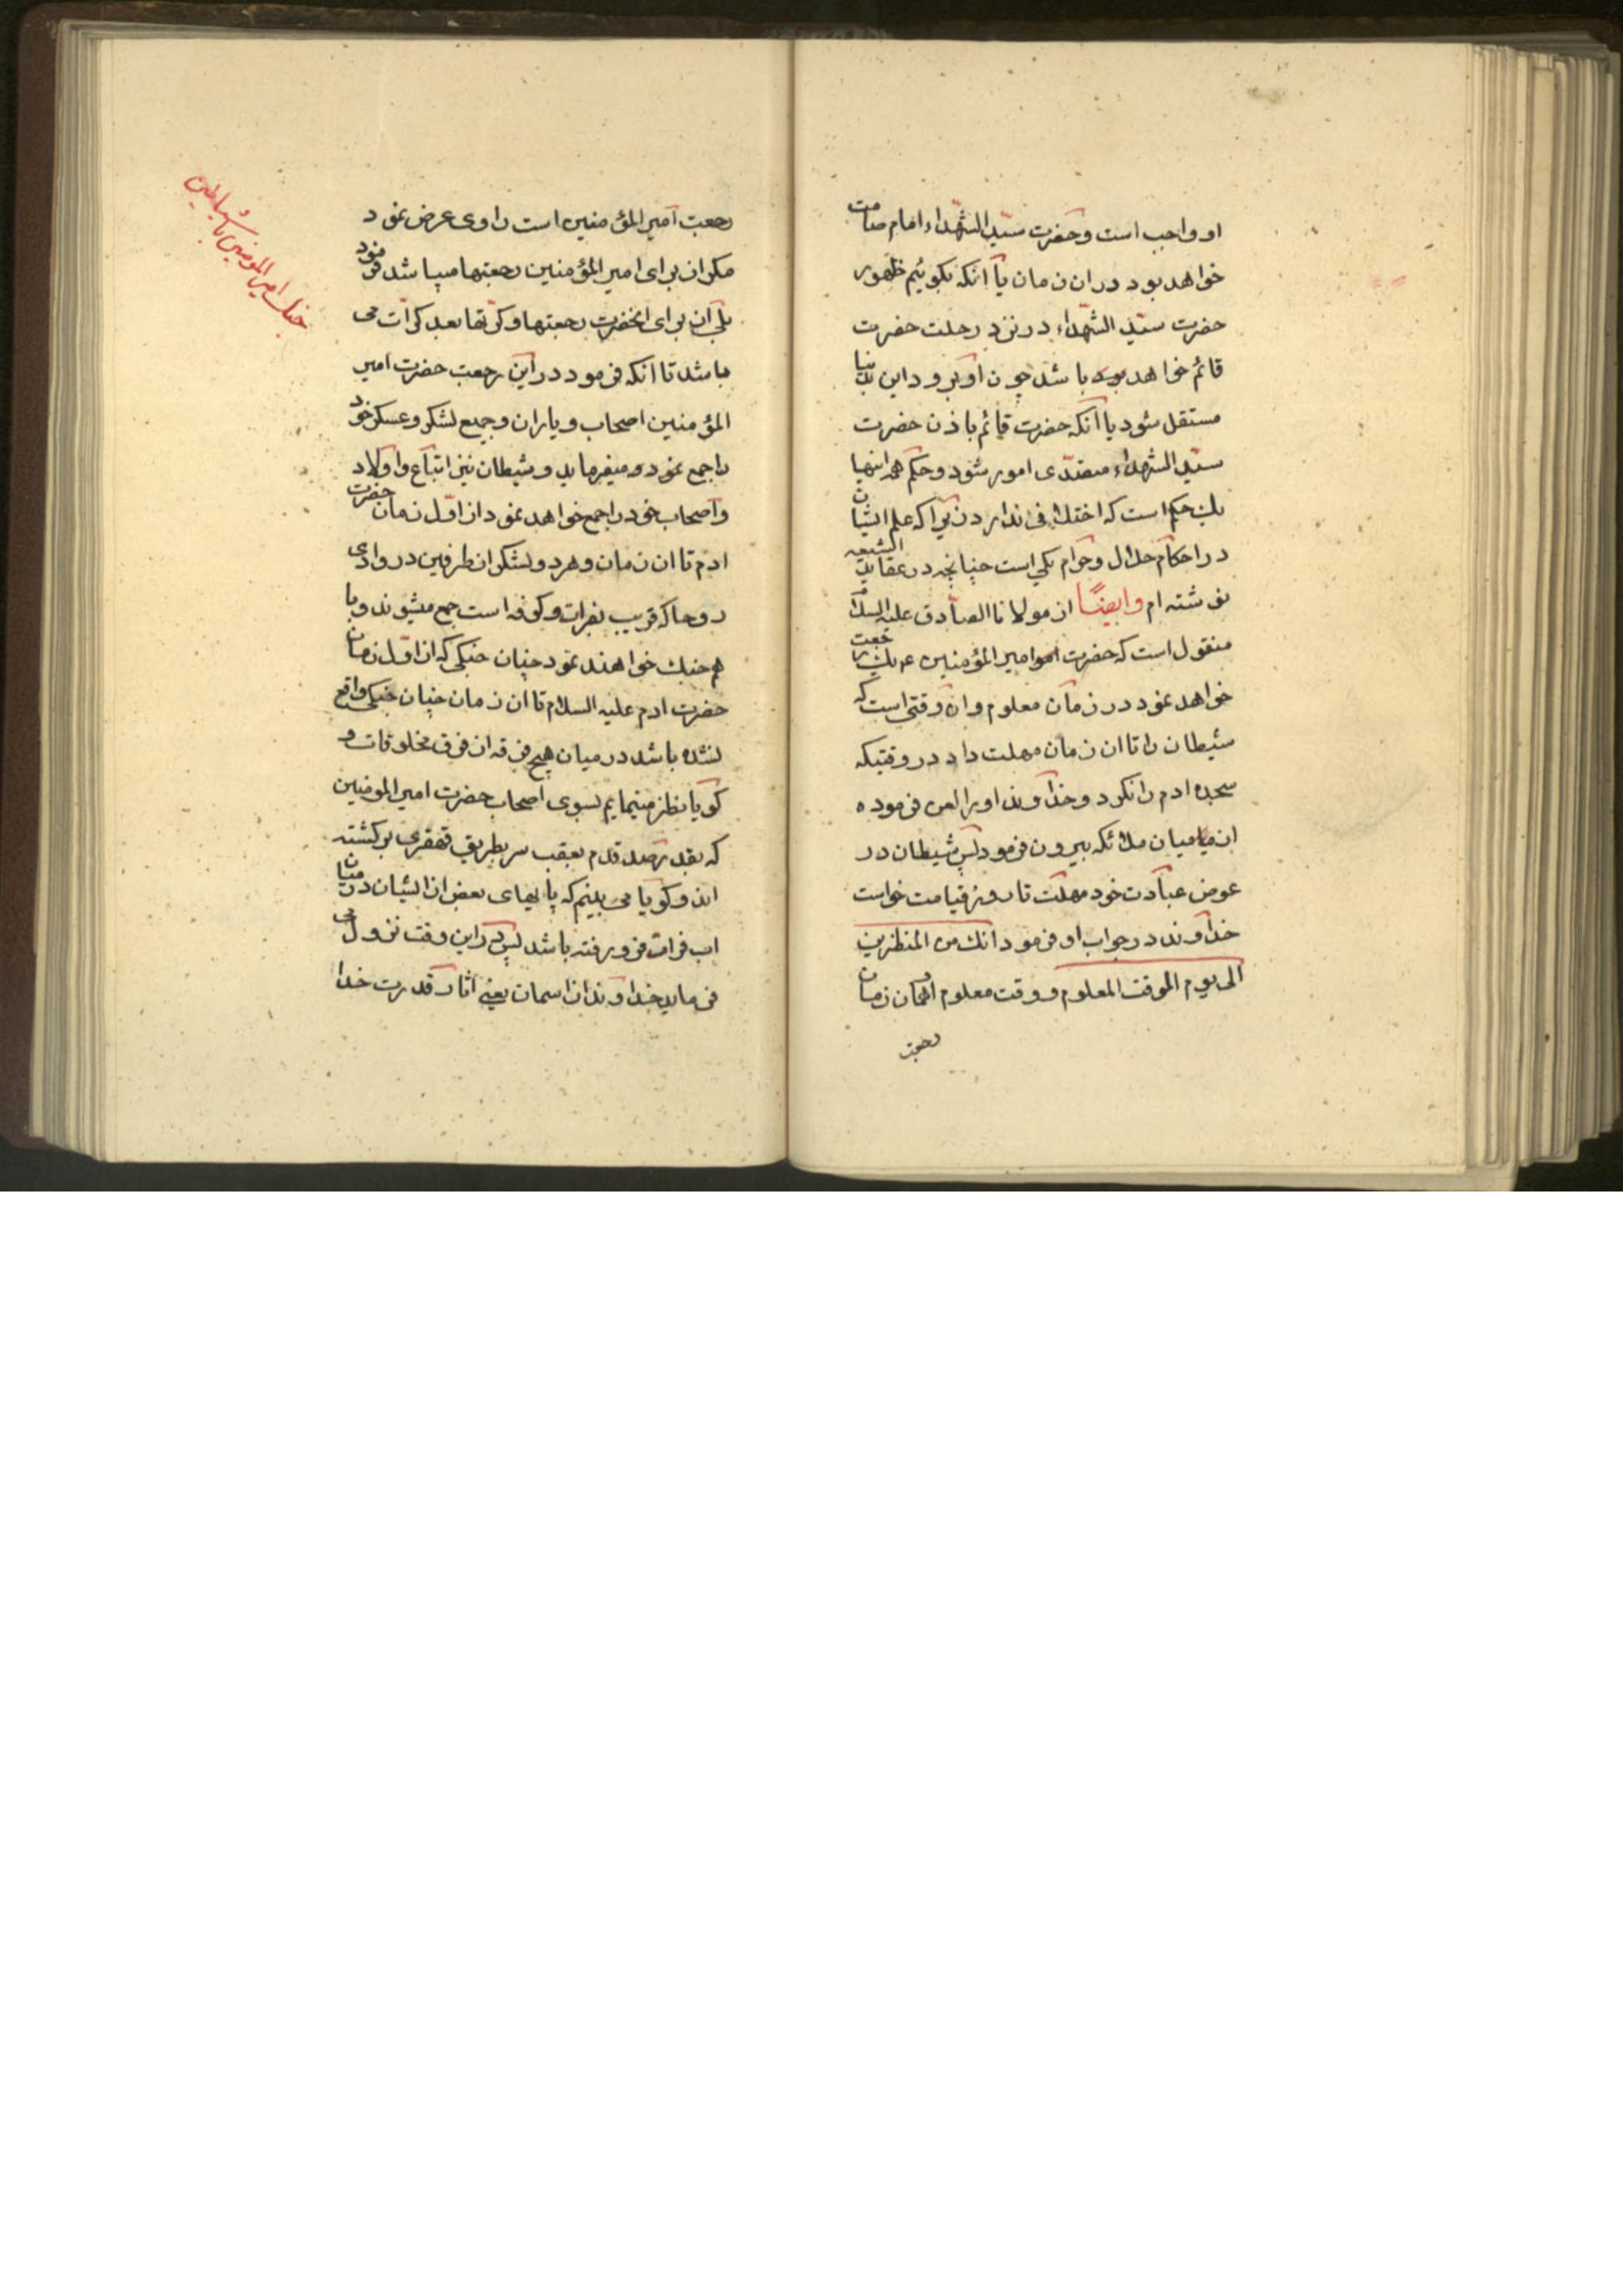 او واجب است و حضرت سیّد الشّهداء امام صامت
خواهد بود در ان زمان یا انکه بکوئیم ظهور
حضرت سیّد الشّهداء در نزد رحلت حضرت
قائم خواهد بود باشد چون او برود این
مستقل شود یا انکه حضرت قائم باذن حضرت
سیّد الشهداء متصدّی امور شود و حکم همه اینها
یک حکم است که اختلافی ندارد زیرا که علم ایشان
در احکام حلال و حرام یکی است چنانچه در عقاید الشیعه
نوشته ام وایضًا از مولانا الصّادق علیه السلام
منقول است که حضرت امیر المؤمنین ع یک رجعت
خواهد نمود در زمان معلوم و ان وقتی است که
شیطان را تا ان زمان مهلت داد در وقتیکه
سجده ادم را نکرد و خداوند او را لعن فرموده
از میان ملائکه بیرون فرمود پس شیطان در
عوض عبادت خود مهلت تا روز قیامت خواست
خداوند در جواب او فرمود انک من المنظرین
الی یوم الوقت المعلوم و وقت معلوم همان زمان
رجعت
رجعت امیر المؤمنین است راوی عرض نمود
مکر از برای امیر المؤمنین رجعتها میباشد فرمود
بلی از برای انحضرت رجعتها و کرّتها بعد کرّات می
باشد تا انکه فرمود در این رجعت حضرت امیر
المؤمنین اصحاب و یاران و جمیع لشکر و عسکر خود
را جمع نمود و میفرماید و شیطان نیز اتباع و اولاد
و اصحاب خود را جمع خواهد نمود از اوّل زمان حضرت
ادم تا ان زمان و هر دو لشکر از طرفین در وادی
روحا که قریب بفرات و کوفه است جمع میشوند و با
هم جنک خواهند نمود چنان جنکی که از اوّل زمان
حضرت ادم علیه السلام تا ان زمان چنان جنکی واقع
نشده باشد در میان هیچ فرقه از فرق مخلوقات و
کویا نظر مینمایم بسوی اصحاب حضرت امیر المومنین
که بقدر صد قدم بعقب سر بطریق قهقری برکشته
اند و کویا می بینم که پایهای بعض از ایشان در میان
اب فرات فرو رفته باشد پس در این وقت نزول می
فرماید خداوند از اسمان یعنی اثار قدرت خدا
جنک امیر المومنین با شیاطین